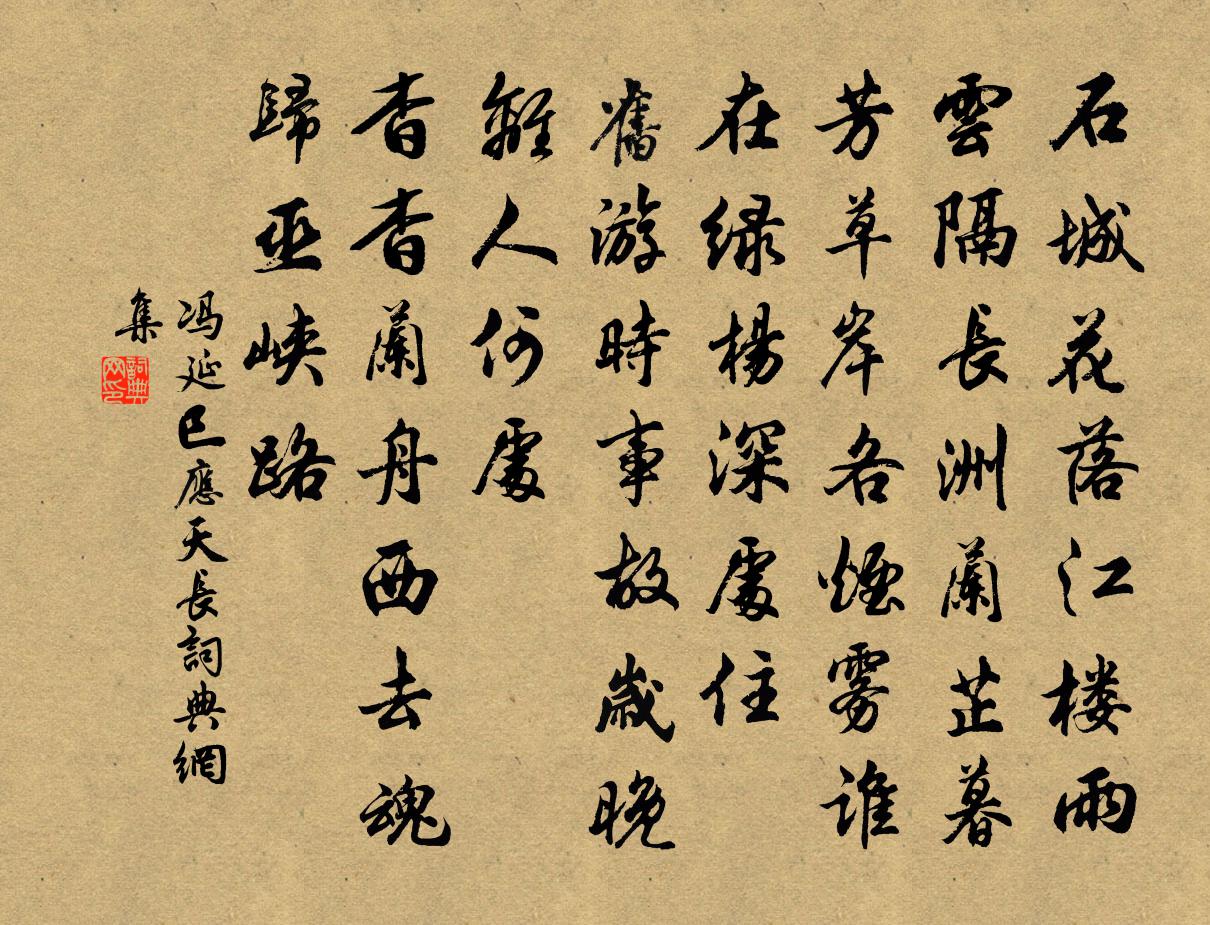 石城花落江楼雨
雲隔長洲蘭芷暮
芳草岸各煙雾谁
在绿楊深處住
舊游時事故歲晚
離人何處
杳杳蘭舟西去魂
歸巫峡路
冯延巳應天長詞典網
集
詞典网印